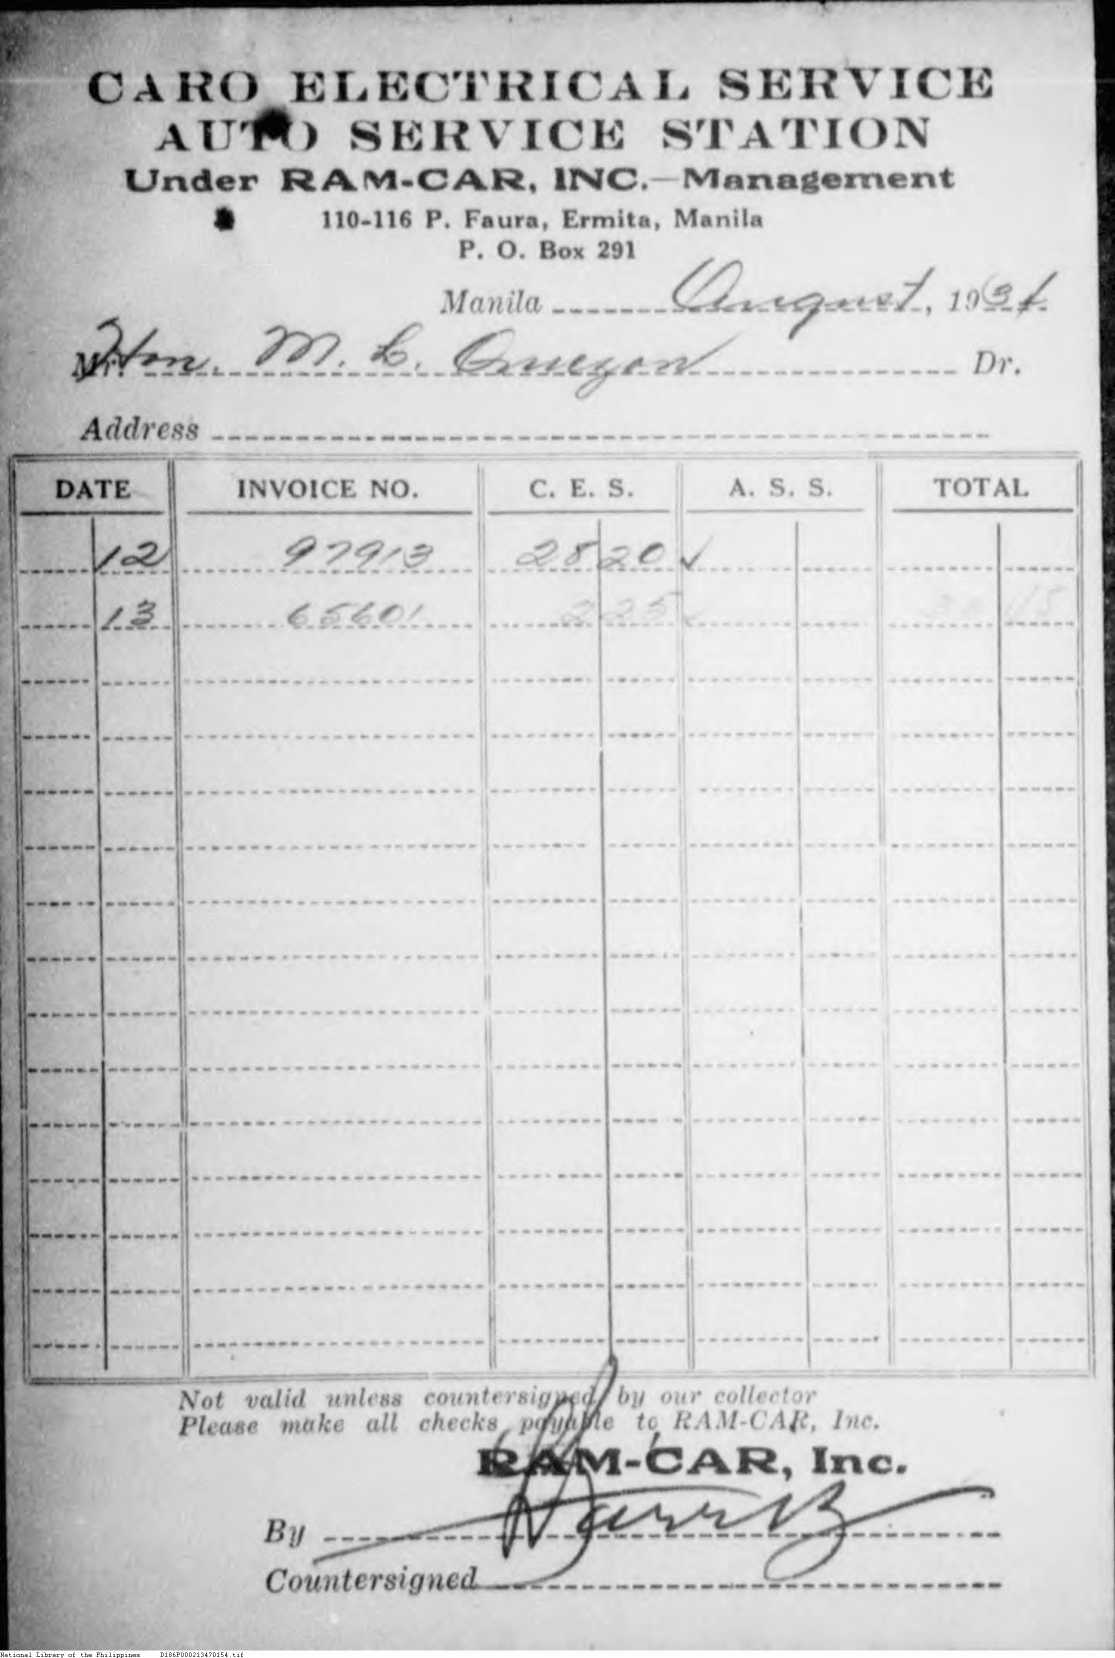 CARO ELECTRICAL SERVICE
AUTO SERVICE STATION
Under RAM-CAR, INC.—Management
110-116 P. Faura, Ermita, Manila
P. O. Box 291
Manila August, 1931
Hon. M. L. Quezon Dr.
Address
DATE INVOICE NO. C. E. S. A. S. S. TOTAL
12 97913 28 20 ✓
13 65601 2 25 ✓ 30 45
Not valid unless countersigned by our collector
Please make all checks payable to RAM-CAR, Inc.
RAM-CAR, Inc.
By
Countersigned
National Library of the Philippines D186P000213470154.tif